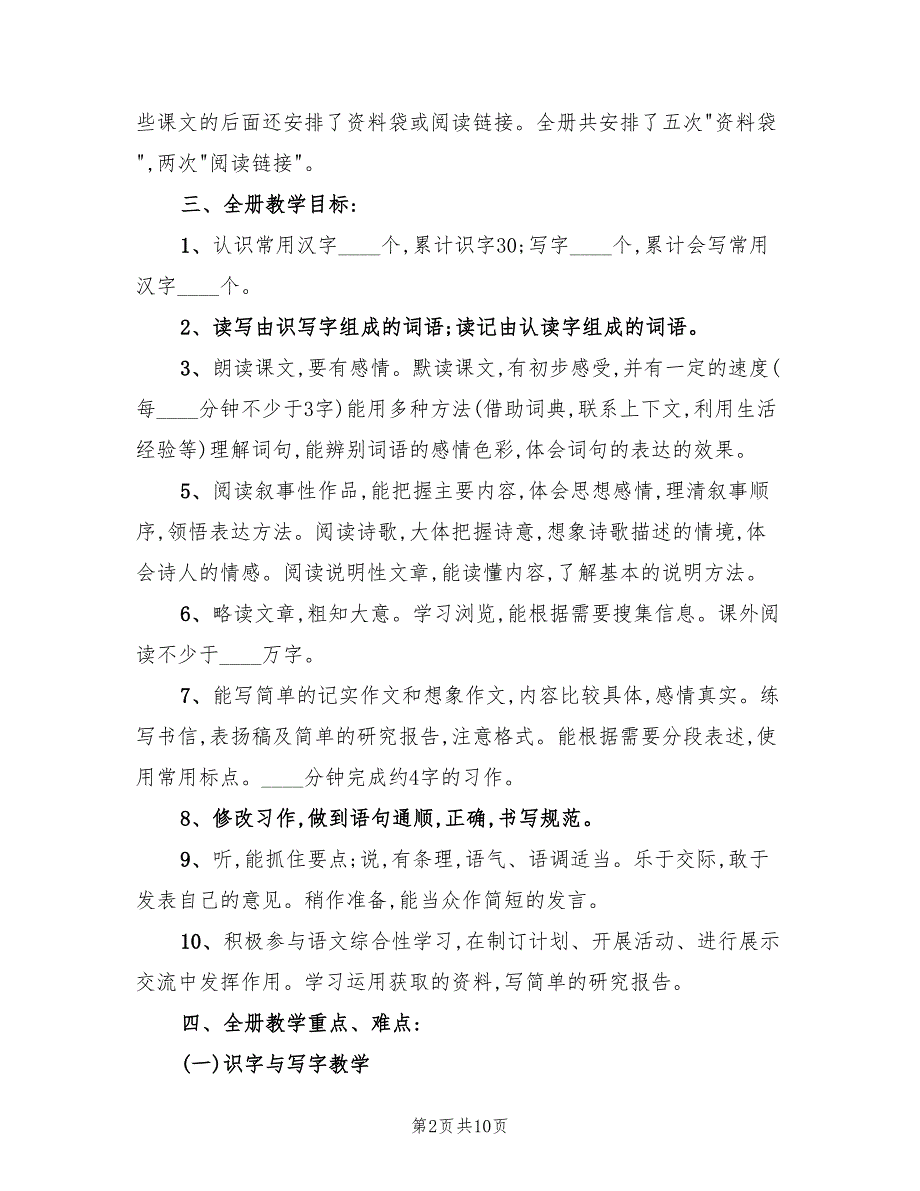 些课文的后面还安排了资料袋或阅读链接。全册共安排了五次"资料袋
",两次"阅读链接"。
三、全册教学目标:
1、认识常用汉字____个,累计识字30;写字____个,累计会写常用
汉字____个。
2、读写由识写字组成的词语;读记由认读字组成的词语。
3、朗读课文,要有感情。默读课文,有初步感受,并有一定的速度(
每____分钟不少于3字)能用多种方法(借助词典,联系上下文,利用生活
经验等)理解词句,能辨别词语的感情色彩,体会词句的表达的效果。
5、阅读叙事性作品,能把握主要内容,体会思想感情,理清叙事顺
序,领悟表达方法。阅读诗歌,大体把握诗意,想象诗歌描述的情境,体
会诗人的情感。阅读说明性文章,能读懂内容,了解基本的说明方法。
6、略读文章,粗知大意。学习浏览,能根据需要搜集信息。课外阅
读不少于____万字。
7、能写简单的记实作文和想象作文,内容比较具体,感情真实。练
写书信,表扬稿及简单的研究报告,注意格式。能根据需要分段表述,使
用常用标点。____分钟完成约4字的习作。
8、修改习作,做到语句通顺,正确,书写规范。
9、听,能抓住要点;说,有条理,语气、语调适当。乐于交际,敢于
发表自己的意见。稍作准备,能当众作简短的发言。
10、积极参与语文综合性学习,在制订计划、开展活动、进行展示
交流中发挥作用。学习运用获取的资料,写简单的研究报告。
四、全册教学重点、难点:
(一)识字与写字教学
第2页共10页